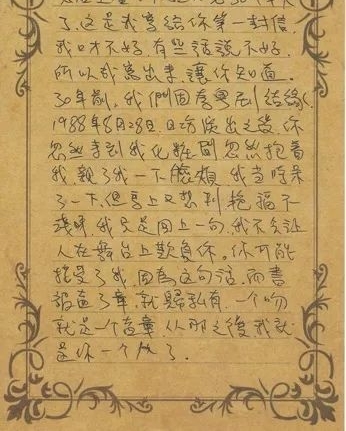 了,這是我寫給你第一封信
我口才不好,有些話說不好,
所以我寫出來,讓你知道。
30年前,我們因為粵劇結緣,
1988年8月28日,日場演出之後,你
忽然走到我化粧間忽然抱着
我,親了我一下臉頰,我當時呆
了一下,但馬上又想到
我只是回上一句,我不會讓
人在舞台上欺負你。你可能
接受了我,因為這句話,而書
蓋了章,就歸私有,一個吻
就是一個蓋章,從那之後我就
是你一個人了。